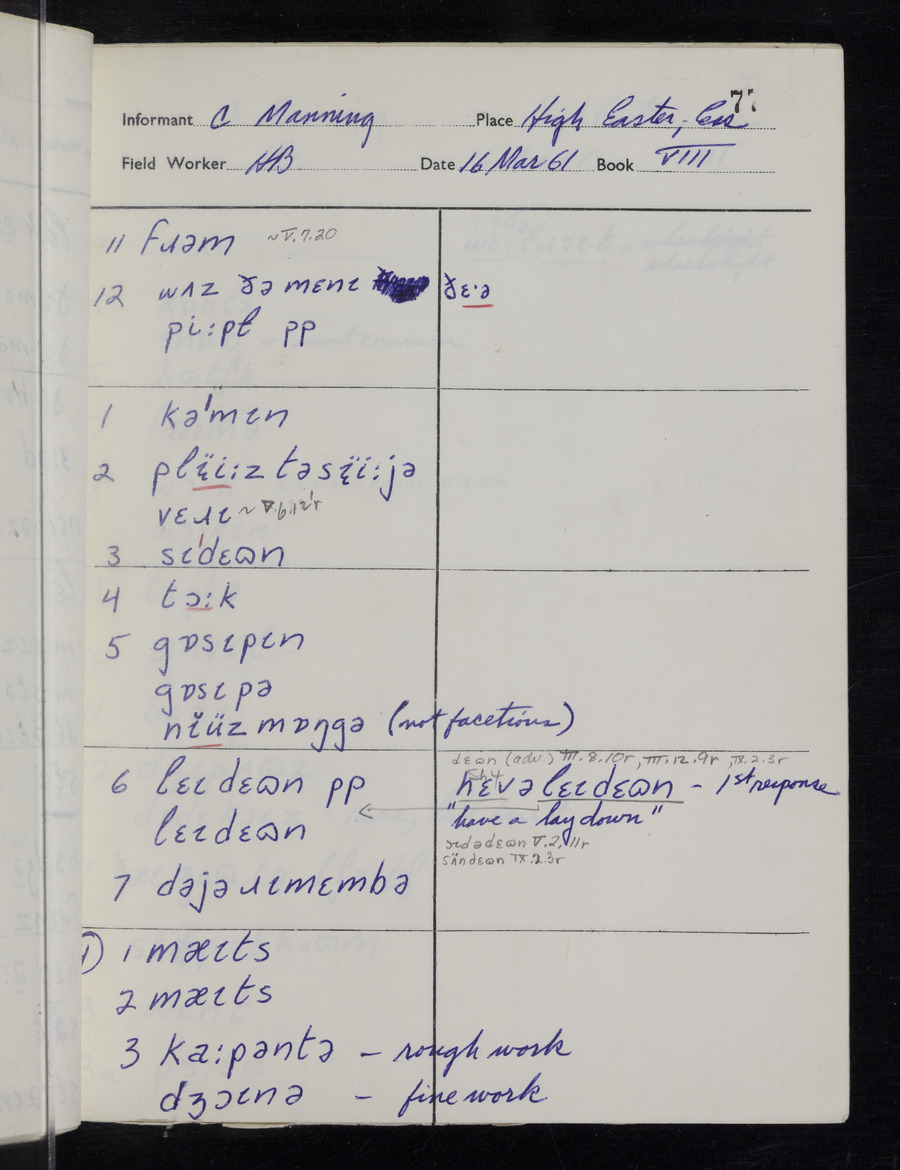 77
Informant C Manning Place High Easter, Ess
Field Worker HB Date 16 Mar 61 Book VIII
11 fɹəm ~V.7.20
12 wʌz ðə mɛnɩ ðɛ·ə
pi:pɫ pp
1 kə'mɩn
2 plɪ̈i:z təsɪ̈i:jə
vɛɹɩ ~ V.6.12'r
3 sɩ'dɛɷn
4 tɔ:k
5 gɒsɩpɩn
gɒsɩpə
nɪ̆üz mɒŋgə (not facetious)
dɛɷn (adv.) III.8.10r, III.12.9r, IX.2.3r
6 lɛɩdɛɷn pp hɛvə lɛɩdɛɷn - 1st response
lɛɩdɛɷn "have a lay down"
sɩdədɛɷn V.2.11r
sändɛɷn IX.2.3r
7 dəjəɹɩmɛmbə
1) 1 mæɩts
2 mæɩts
3 ka:pəntə - rough work
dʒɔɩnə - fine work